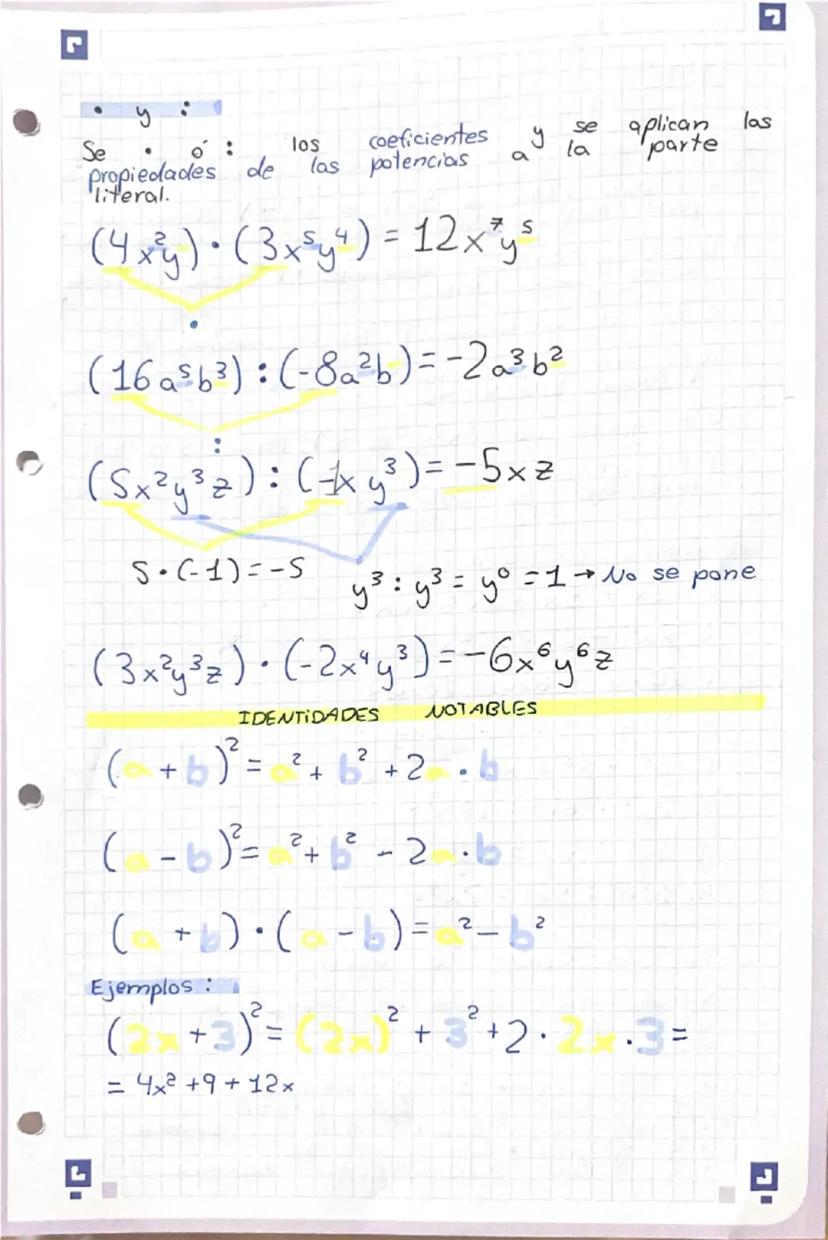 • y :
Se • ó : los coeficientes y se aplican las
propiedades de las potencias a la parte
literal.
(4x²y) • (3x⁵y⁴) = 12x⁷y⁵
•
(16a⁵b³) : (-8a²b) = -2a³b²
:
(5x²y³z) : (-1x y³) = -5xz
5 • (-1) = -5 y³ : y³ = y⁰ = 1 → No se pone
(3x²y³z) • (-2x⁴y³) = -6x⁶y⁶z
IDENTIDADES NOTABLES
(a + b)² = a² + b² + 2a • b
(a - b)² = a² + b² - 2a • b
(a + b) • (a - b) = a² - b²
Ejemplos :
(2x + 3)² = (2x)² + 3² + 2 • 2x • 3 =
= 4x² + 9 + 12x